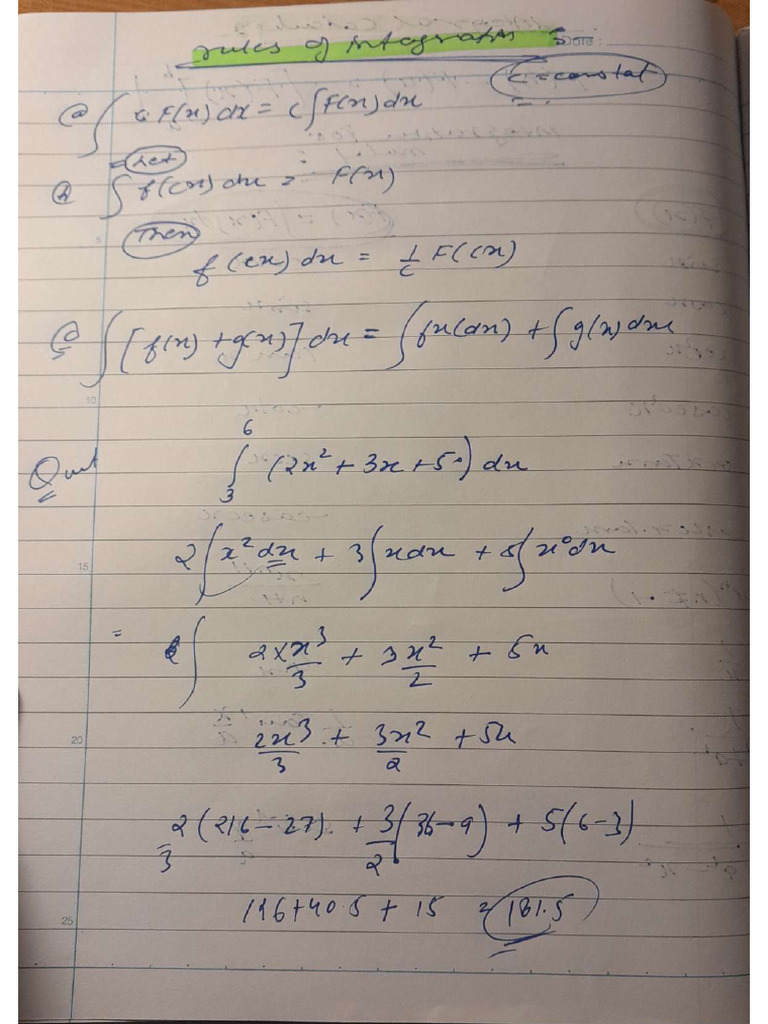 rules of integration
c = constat
@ ∫ c F(x) dx = c ∫ F(x) dx
= Let
ⓑ ∫ f(cx) dx = F(x)
Then
f(cx) dx = 1/c F(cx)
© ∫ [f(x) + g(x)] dx = ∫ fx(dx) + ∫ g(x) dx
Quet ∫₃⁶ (2x² + 3x + 5) dx
2 ∫ x² dx + 3 ∫ x dx + 5 ∫ x⁰ dx
= ∫ 2 × x³/3 + 3x²/2 + 5x
2x³/3 + 3x²/2 + 5x
2/3 (216 - 27) + 3/2 (36 - 9) + 5(6 - 3)
126 + 40.5 + 15 = 181.5
10
15
20
25